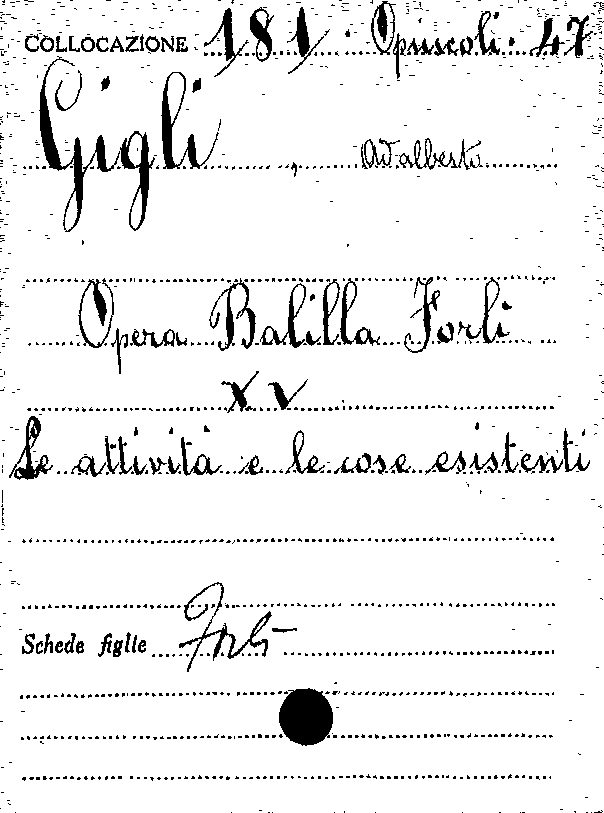 COLLOCAZIONE 181 · Opuscoli · 47
Gigli, Adalberto
Opera Balilla Forlì
XV
Le attività e le cose esistenti
Schede figlie Forlì